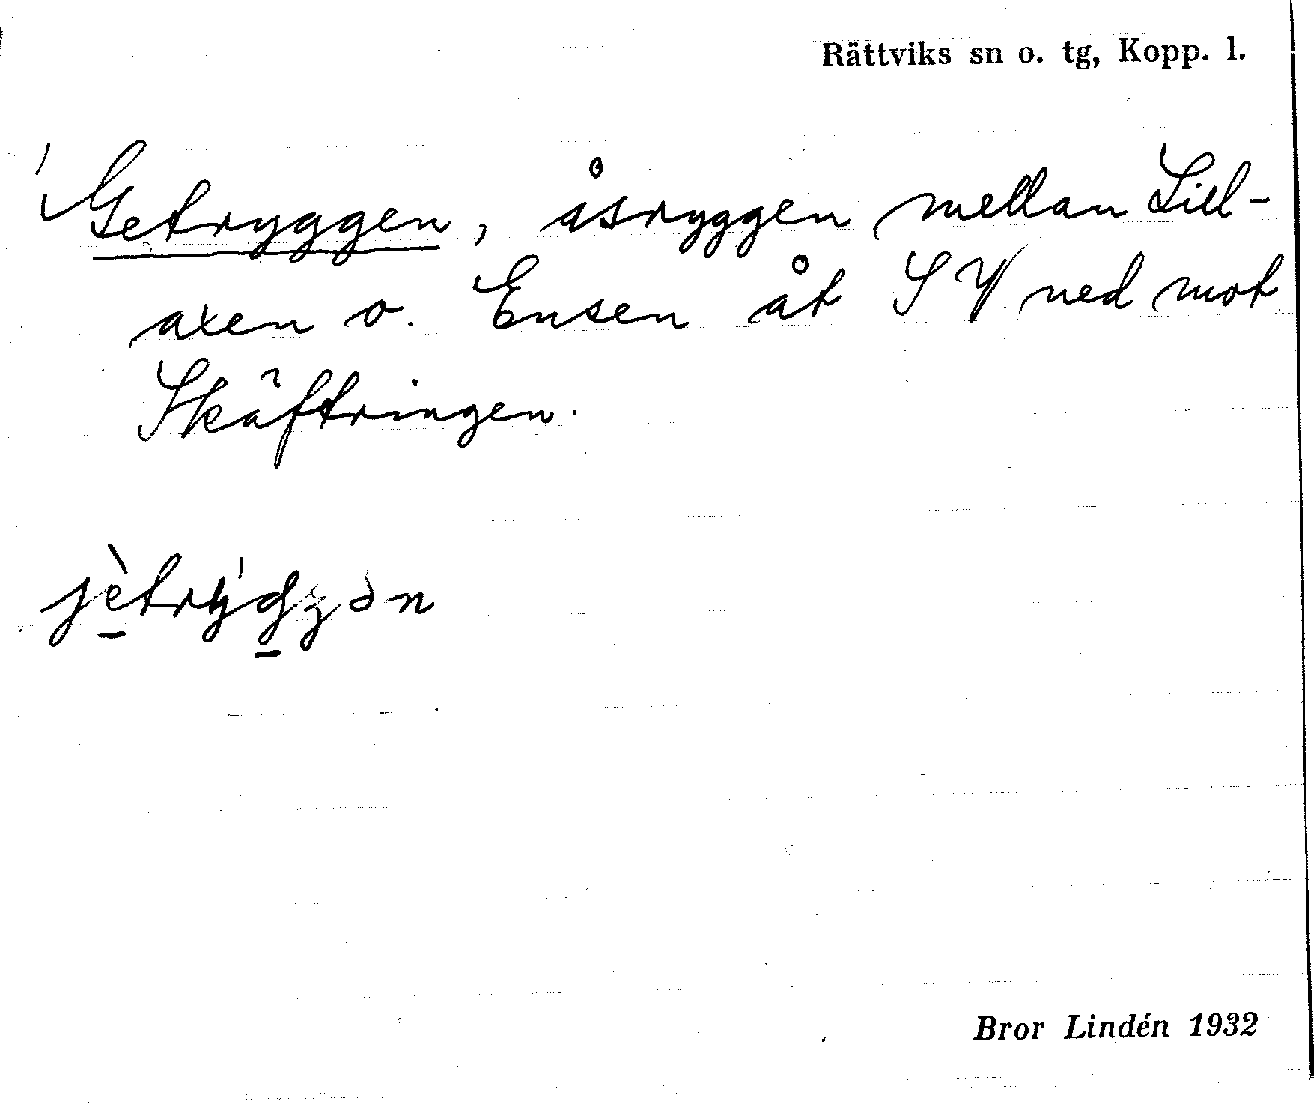 Rättviks sn o. tg, Kopp. l.
Getryggen, åsryggen mellan Lill-
axen o. Ensen åt SV ned mot
Skäftringen.
Bror Lindén 1932